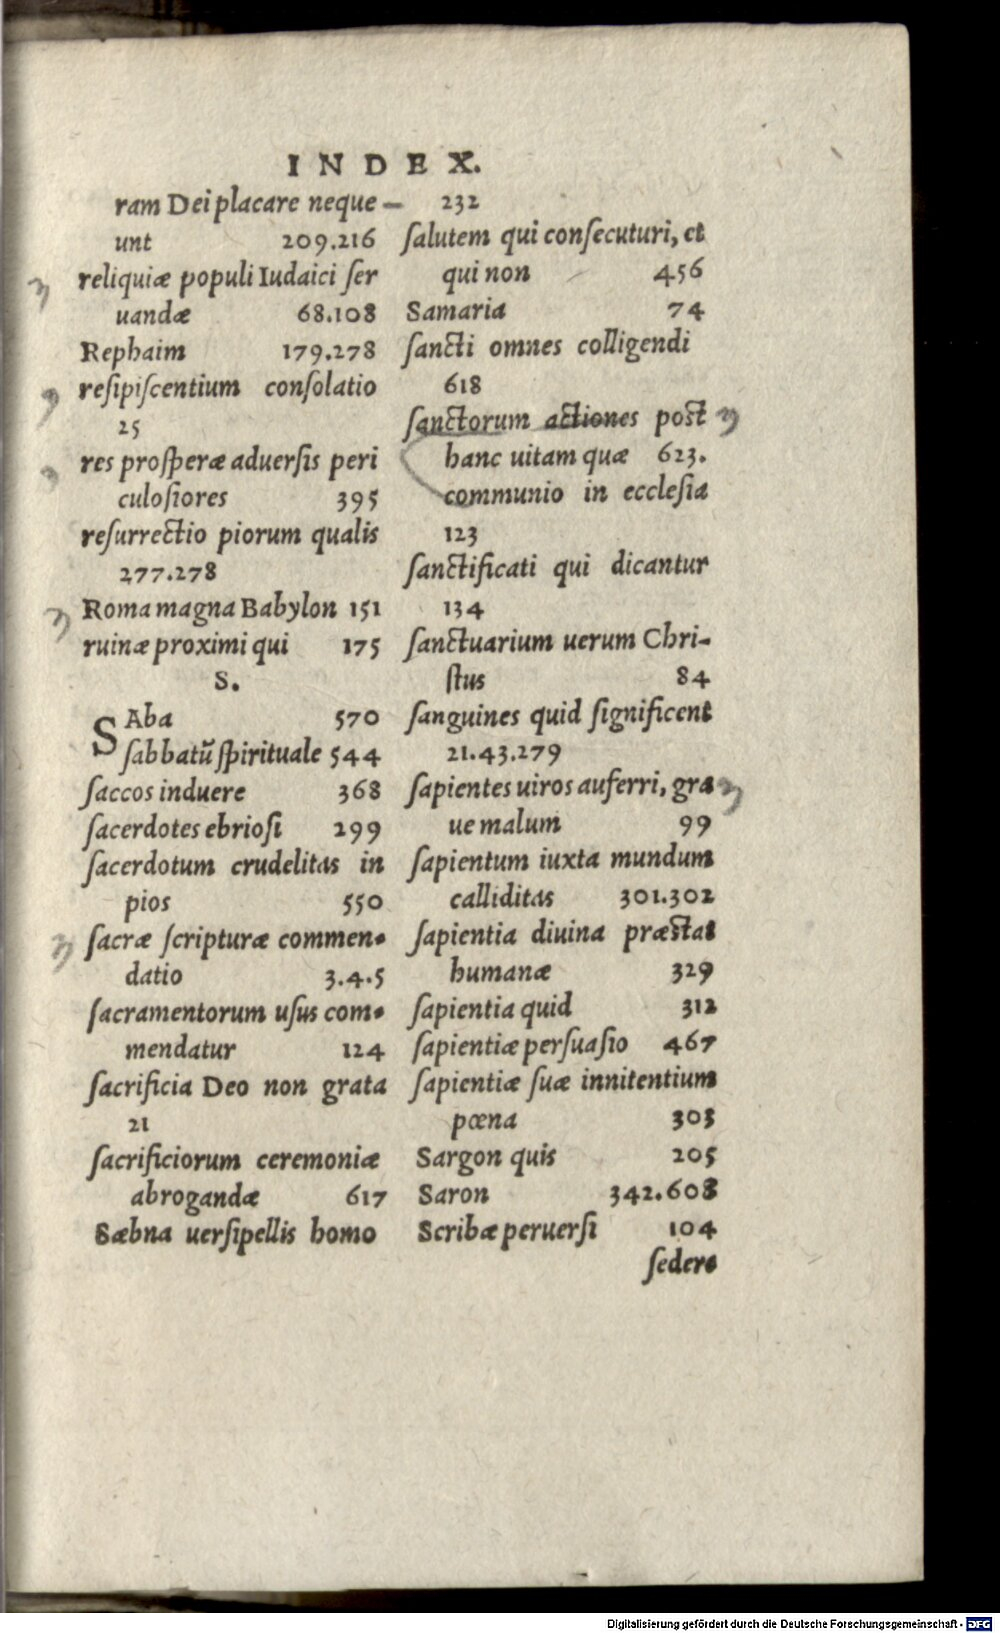 INDEX.
ram Dei placare neque-
unt 209.216
reliquiæ populi Iudaici ſer
uandæ 68.108
Rephaim 179.278
reſipiſcentium conſolatio
25
res proſperæ aduerſis peri
culoſiores 395
reſurrectio piorum qualis
277.278
Roma magna Babylon 151
ruinæ proximi qui 175
S.
SAba 570
ſabbatū ſpirituale 544
ſaccos induere 368
ſacerdotes ebrioſi 299
ſacerdotum crudelitas in
pios 550
ſacræ ſcripturæ commen-
datio 3.4.5
ſacramentorum uſus com-
mendatur 124
ſacrificia Deo non grata
21
ſacrificiorum ceremoniæ
abrogandæ 617
Sæbna uerſipellis homo
232
ſalutem qui conſecuturi, et
qui non 456
Samaria 74
ſancti omnes colligendi
618
ſanctorum actiones poſt
hanc uitam quæ 623.
communio in eccleſia
123
ſanctificati qui dicantur
134
ſanctuarium uerum Chri-
ſtus 84
ſanguines quid ſignificent
21.43.279
ſapientes uiros auferri, gra
ue malum 99
ſapientum iuxta mundum
calliditas 301.302
ſapientia diuina præſtat
humanæ 329
ſapientia quid 312
ſapientiæ perſuaſio 467
ſapientiæ ſuæ innitentium
pœna 303
Sargon quis 205
Saron 342.608
Scribæ peruerſi 104
ſedere
Digitalisierung gefördert durch die Deutsche Forschungsgemeinschaft - DFG